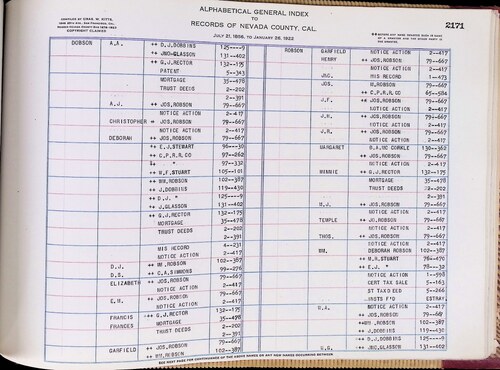 COMPILED BY CHAS. W. KITTS
COPYRIGHT CLAIMED
ALPHABETICAL GENERAL INDEX
TO
RECORDS OF NEVADA COUNTY, CAL.
JULY 21, 1856, TO JANUARY 26, 1922
2171
DOBSON A.A. ++ D.J.DOBBINS 125---9
++ JNO.GLASSON 131--402
++ G.J.RECTOR 132--175
PATENT 5--343
MORTGAGE 35--478
TRUST DEEDS 2--202
2--391
A.J. ++ JOS.ROBSON 79--667
NOTICE ACTION 2--417
CHRISTOPHER ++ JOS.ROBSON 79--667
NOTICE ACTION 2--417
DEBORAH ++ JOS.ROBSON 79--667
++ E.J.STEWART 96---30
++ C.P.R.R.CO 97--262
++ " 97--332
++ W.F.STUART 105--101
++ WM.ROBSON 102--387
++ J.DOBBINS 119--430
++ D.J. " 125---9
++ J.GLASSON 131--402
++ G.J.RECTOR 132--175
MORTGAGE 35--478
TRUST DEEDS 2--202
2--391
MIS RECORD 4--231
NOTICE ACTION 2--417
D.J. ++ WM.ROBSON 102--387
D.S. ++ C.A.SIMMONS 99--276
ELIZABETH ++ JOS.ROBSON 79--667
NOTICE ACTION 2--417
E.H. ++ JOS.ROBSON 79--667
NOTICE ACTION 2--417
FRANCIS ++ G.J.RECTOR 132--175
FRANCES MORTGAGE 35--478
TRUST DEEDS 2--202
2--391
GARFIELD ++ JOS.ROBSON 79--667
++ WM.ROBSON 102--387
ROBSON GARFIELD NOTICE ACTION 2--417
HENRY ++ JOS.ROBSON 79--667
NOTICE ACTION 2--417
JNO. MIS RECORD 1--473
JOS. M.ROBSON 79--667
++ C.P.R.R.CO 65--584
J.F. ++ JOS.ROBSON 79--667
NOTICE ACTION 2--417
J.H. ++ JOS.ROBSON 79--667
NOTICE ACTION 2--417
J.R. ++ JOS.ROBSON 79--667
NOTICE ACTION 2--417
MARGARET 130--362
++ JOS.ROBSON 79--667
NOTICE ACTION 2--417
MINNIE ++ G.J.RECTOR 132--175
MORTGAGE 35--478
TRUST DEEDS 2--202
2--391
++ JOS.ROBSON 79--667
NOTICE ACTION 2--417
TEMPLE ++ JO.ROBSON 79--667
NOTICE ACTION 2--417
THOS. ++ JOS.ROBSON 79--667
NOTICE ACTION 2--417
WM. DEBORAH ROBSON 102--387
STUART 76--470
++ E.J. " 78--32
NOTICE ACTION 1--598
CERT TAX SALE 5--163
ST TAX D EED 5--266
ESTRAY
NOTICE ACTION 2--417
++ JOS.ROBSON 79--667
++WM.ROBSON 102--387
++ J.DOBBINS 119--430
++ D.J.DOBBINS 125---9
++ JNO.GLASSON 131--402